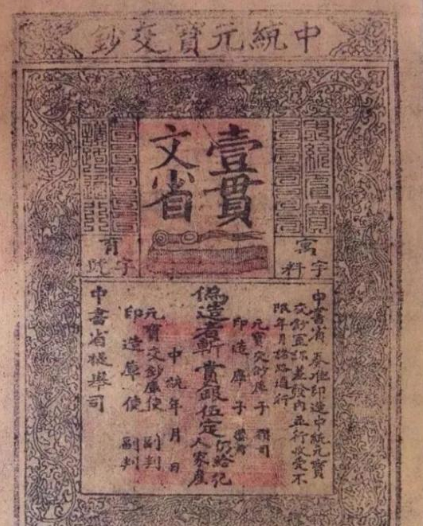 中統元寳交鈔
壹貫
文省
字料
字號
中書省奏准印造中統元寳
交鈔宣課差發內並行收受不
限年月諸路通行
元寳交鈔庫子攢司
印造庫子攢司
偽造者斬賞銀伍定仍給犯
人家産
中統年月日
元寳交鈔庫使副判
印造庫使副判
中書省提舉司